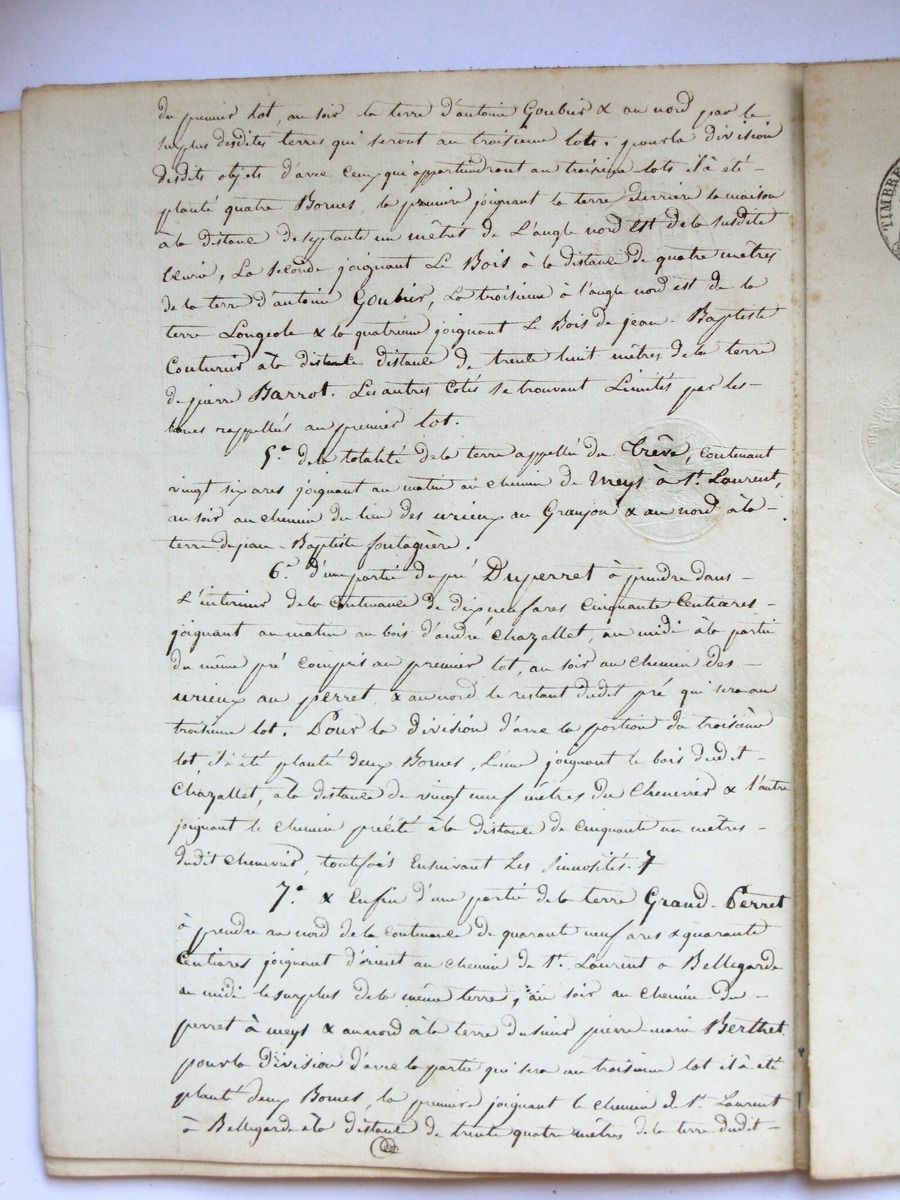 du premier lot, au soir la terre d'antoine Goubier & au nord par le
surplus desdites terres qui seront au troisième lots. pour la division
desdits objets d'avec ceux qui appartiendront au troisième lots il à été
planté quatre Bornes, la première joignant la terre derrière la maison
à la distance de septante un mètres de L'angle nord est de la susdite
La seconde joignant Le Bois à la distance de quatre mètres
de la terre d'antoine Goubier, La troisième à l'angle nord est de la
terre Longeole & la quatrième joignant Le Bois de jean-Baptiste
Couturier à la distance distance de trente huit mètres de la terre
de pierre Barrot. Les autres Cotés se trouvant Limités par les
rappellés au premier lot.
5.° de la totalité de la terre appellée du Trêve, Contenant
vingt six ares joignant au matin au chemin de Meys à St. Laurent,
au soir au chemin du lieu des urieux au Granjon & au nord à la
terre de jean-Baptiste fontagnère.
6.° d'une partie du pré Duperret à prendre dans
L'interieur de la Contenance de dix neuf ares Cinquante Centiares
joignant au matin au bois d'andré Chazallet, au midi à la partie
du même pré Compris au premier lot, au soir au chemin des
urieux au perret & au nord le restant dudit pré qui sera au
troisième lot. Pour la division d'avec la portion du troisième
lot il à été planté deux Bornes, L'une joignant le bois dudit
Chazallet, à la distance de vingt neuf mètres du Chenevier & l'autre
joignant le chemin précité à la distance de cinquante un mètres
dudit chenevier, toutefois Ensuivant Les Sinuosités.
7.° & Enfin d'une partie de la terre Grand-Perret
à prendre au nord de la Contenance de quarante neuf ares & quarante
Centiares joignant d'orient au chemin de St. Laurent à Bellegarde
au midi le surplus de la même terre, au soir au chemin du
perret à meys & au nord à la terre du sieur pierre-marie Berthet
pour la Division d'avec la partie qui sera au troisième lot il à été
planté deux Bornes, la première joignant le chemin de St. Laurent
à Bellegarde à la distance de trente quatre mètres de la terre dudit
TIMBRE